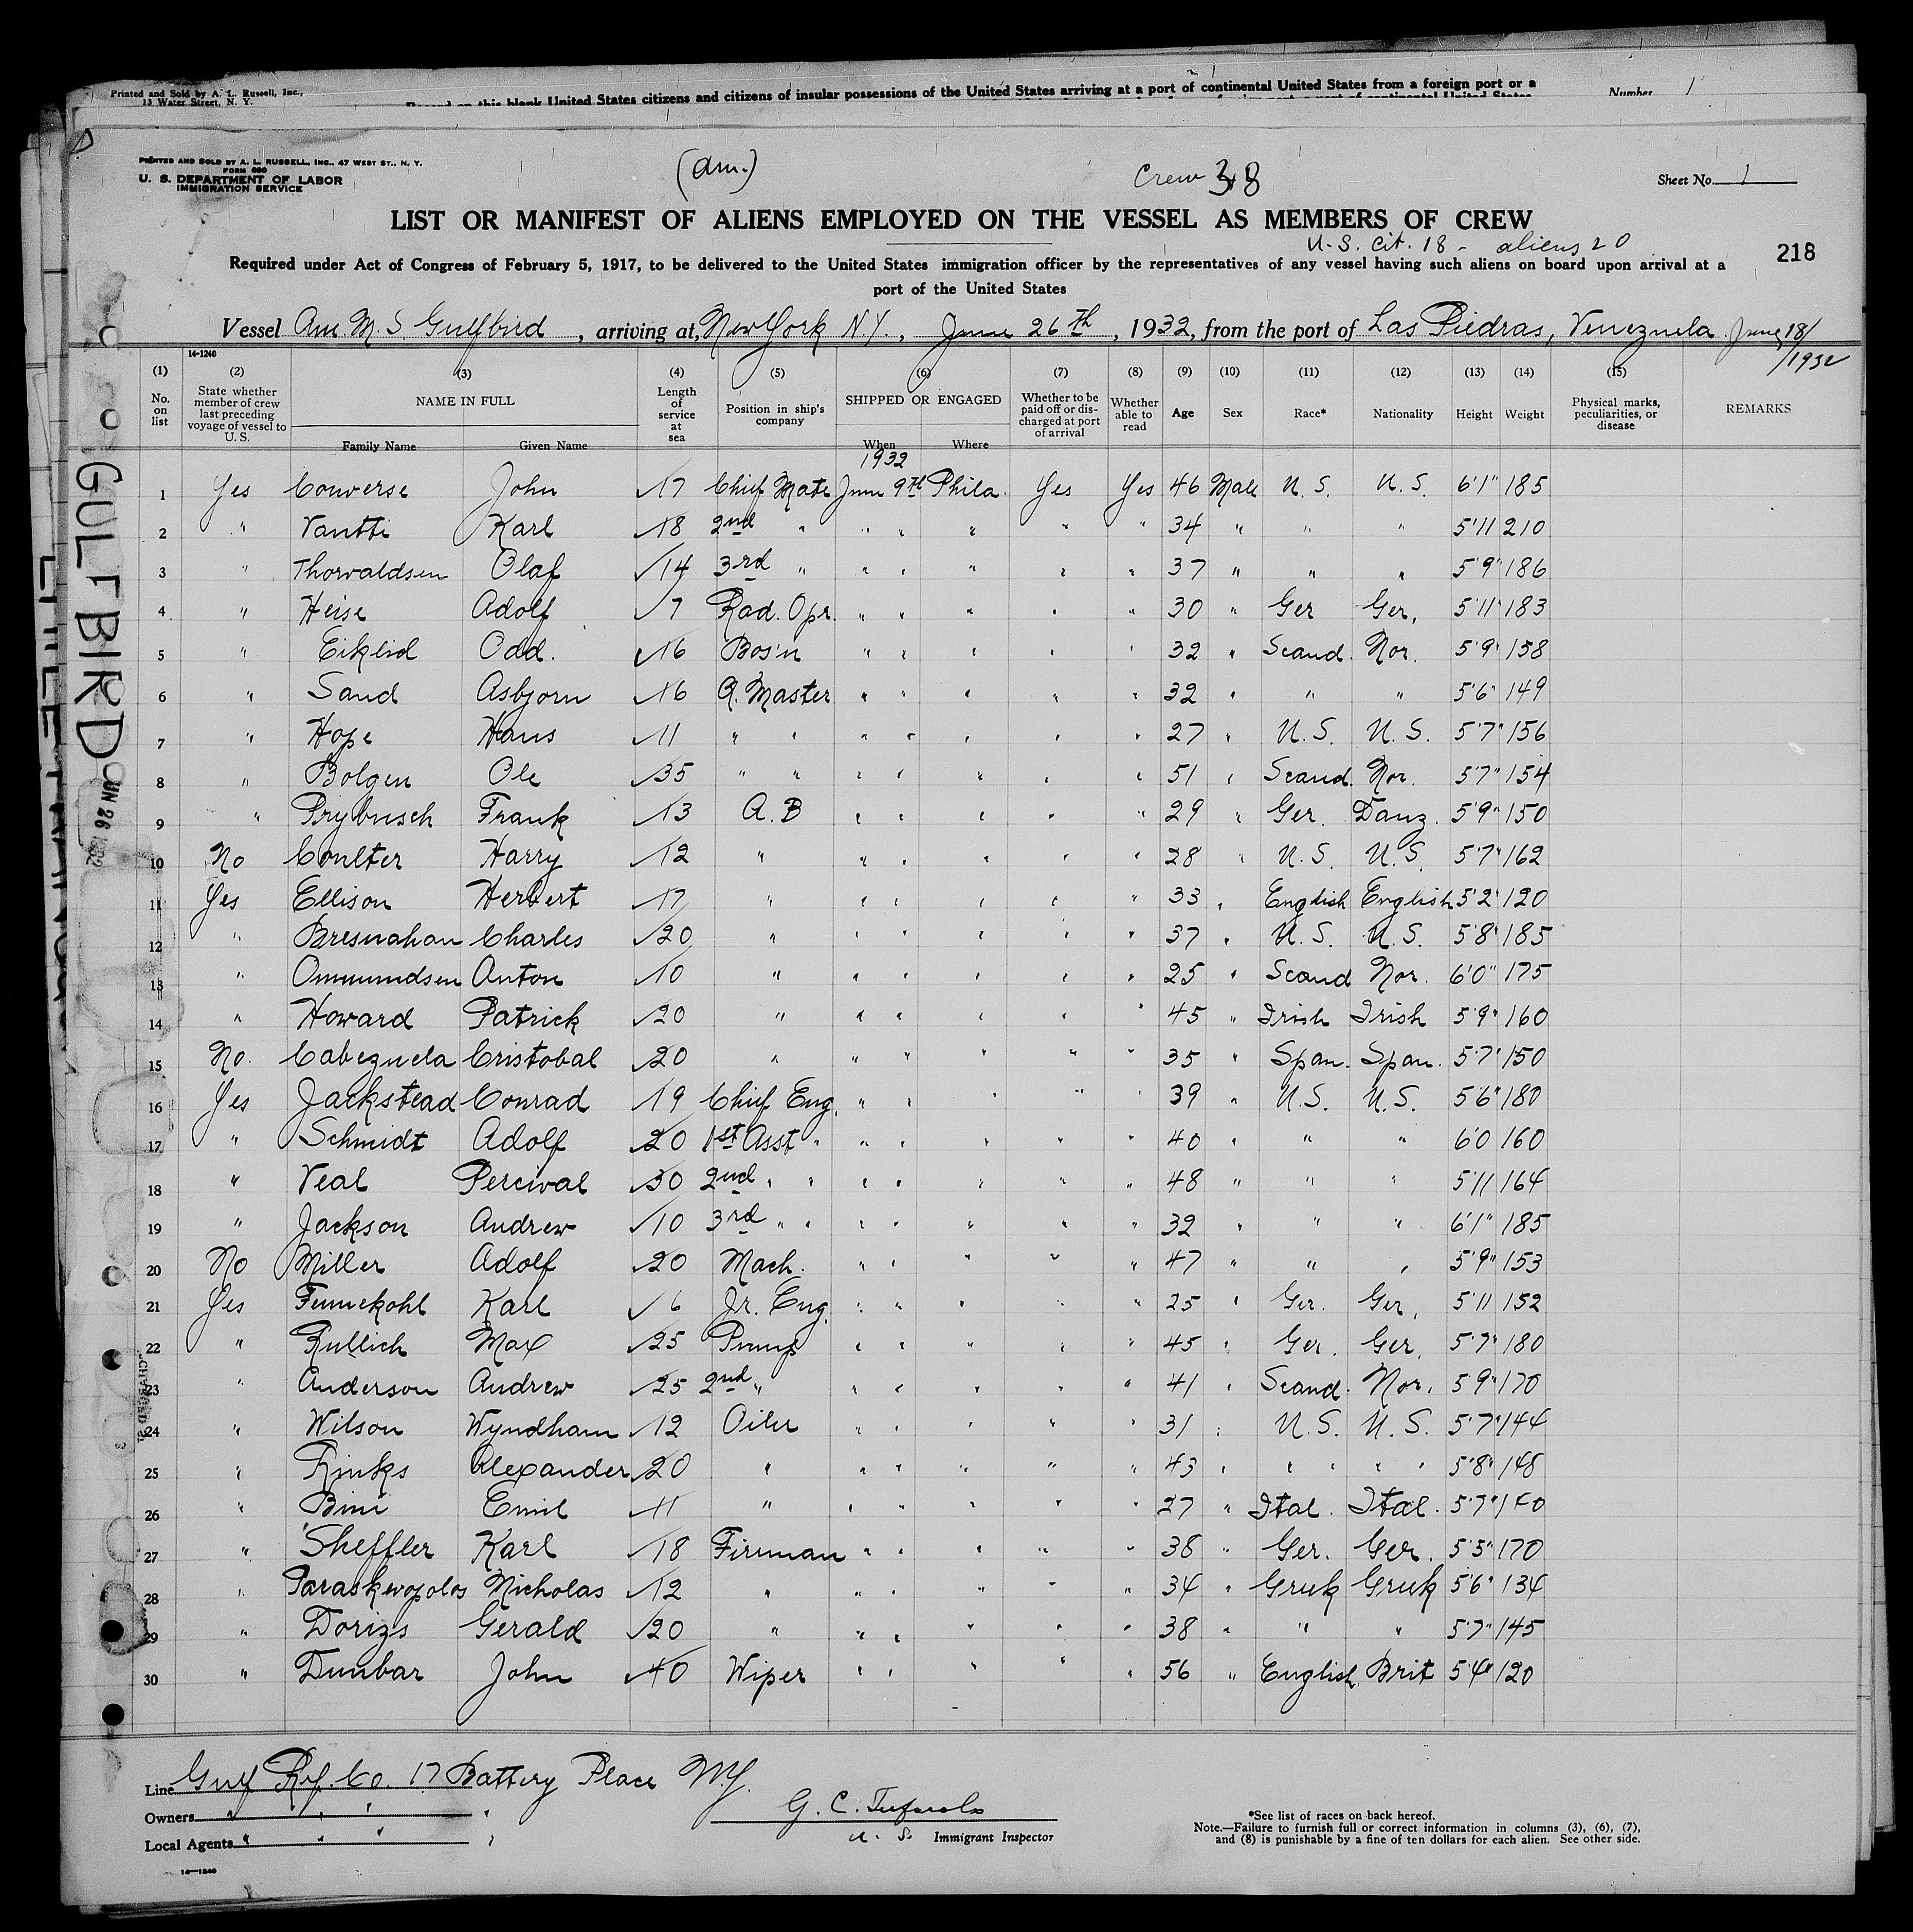 Printed and Sold by A. L. Russell, Inc.,
13 Water Street, N. Y.
Record on this blank United States citizens and citizens of insular possessions of the United States arriving at a port of continental United States from a foreign port or a
Number 1
PRINTED AND SOLD BY A. L. RUSSELL, INC., 47 WEST ST., N. Y.
FORM 680
U. S. DEPARTMENT OF LABOR
IMMIGRATION SERVICE
(Am.)
Crew 38
Sheet No. 1
LIST OR MANIFEST OF ALIENS EMPLOYED ON THE VESSEL AS MEMBERS OF CREW
U.S. Cit. 18 - aliens 20
218
Required under Act of Congress of February 5, 1917, to be delivered to the United States immigration officer by the representatives of any vessel having such aliens on board upon arrival at a
port of the United States
Vessel Am. M. S. Gulfbird, arriving at, New York N.Y., June 26th, 1932, from the port of Las Piedras, Venezuela. June 18/
/1932
14-1240
(1) No. on list
(2) State whether member of crew last preceding voyage of vessel to U. S.
(3) NAME IN FULL Family Name Given Name
(4) Length of service at sea
(5) Position in ship's company
(6) SHIPPED OR ENGAGED When Where
(7) Whether to be paid off or discharged at port of arrival
(8) Whether able to read
(9) Age
(10) Sex
(11) Race*
(12) Nationality
(13) Height
(14) Weight
(15) Physical marks, peculiarities, or disease
REMARKS
1932
1 Yes Converse John 17 Chief Mate June 9th Phila. Yes Yes 46 Male U.S. U.S. 6'1" 185
2 " Vantti Karl 18 2nd " " " " " " 34 " " " 5'11 210
3 " Thorvaldsen Olaf 14 3rd " " " " " " 37 " " " 5'9" 186
4 " Heise Adolf 7 Rad. Opr. " " " " " 30 " Ger Ger, 5'11" 183
5 " Eiklid Odd. 16 Bos'n " " " " " 32 " Scand. Nor. 5'9" 158
6 " Sand Asbjorn 16 Q. Master " " " " " 32 " " " 5'6" 149
7 " Hope Hans 11 " " " " " " " 27 " U.S. U.S. 5'7" 156
8 " Bolgen Ole 35 " " " " " " " 51 " Scand. Nor. 5'7" 154
9 " Prybusch Frank 13 A.B " " " " " 29 " Ger. Danz. 5'9" 150
10 No Coulter Harry 12 " " " " " " 28 " U.S. U.S. 5'7" 162
11 Yes Ellison Herbert 17 " " " " " " 33 " English English 5'2" 120
12 " Bresnahan Charles 20 " " " " " " 37 " U.S. U.S. 5'8" 185
13 " Ommundsen Anton 10 " " " " " " 25 " Scand Nor. 6'0" 175
14 " Howard Patrick 20 " " " " " " 45 " Irish Irish 5'9" 160
15 No. Cabezuela Cristobal 20 " " " " " " 35 " Span. Span. 5'7" 150
16 Yes Jackstead Conrad 19 Chief Eng. " " " " " 39 " U.S. U.S. 5'6" 180
17 " Schmidt Adolf 20 1st Asst " " " " " " 40 " " " 6'0 160
18 " Veal Percival 30 2nd " " " " " " " 48 " " " 5'11 164
19 " Jackson Andrew 10 3rd " " " " " " " 32 " " " 6'1" 185
20 No Miller Adolf 20 Mach. " " " " " 47 " " " 5'9" 153
21 Yes Karl 6 Jr. Eng. " " " " " 25 " Ger. Ger, 5'11 152
22 " Rullich Max 25 Pump " " " " " 45 " Ger. Ger, 5'7" 180
23 " Anderson Andrew 25 2nd " " " " " " 41 " Scand. Nor. 5'9" 170
24 " Wilson Wyndham 12 Oiler " " " " " 31 " U.S. U.S. 5'7" 144
25 " Rinks Alexander 20 " " " " " " 43 " " " " " 5'8" 148
26 " Bini Emil 11 " " " " " " 27 " Ital. Ital. 5'7" 140
27 " Sheffler Karl 18 Fireman " " " " " 38 " Ger. Ger. 5'5" 170
28 " Paraskevopolos Nicholas 12 " " " " " " 34 " Greek Greek 5'6" 134
29 " Dorizs Gerald 20 " " " " " " 38 " " " 5'7" 145
30 " Dunbar John 40 Wiper " " " " " 56 " English Brit 5'4" 120
Line Gulf Ref. Co. 17 Battery Place N.Y.
Owners " " " "
Local Agents " " " "
G. C.
U. S. Immigrant Inspector
*See list of races on back hereof.
Note.—Failure to furnish full or correct information in columns (3), (6), (7),
and (8) is punishable by a fine of ten dollars for each alien. See other side.
14—1240
GULFBIRD
JUN 26 1932